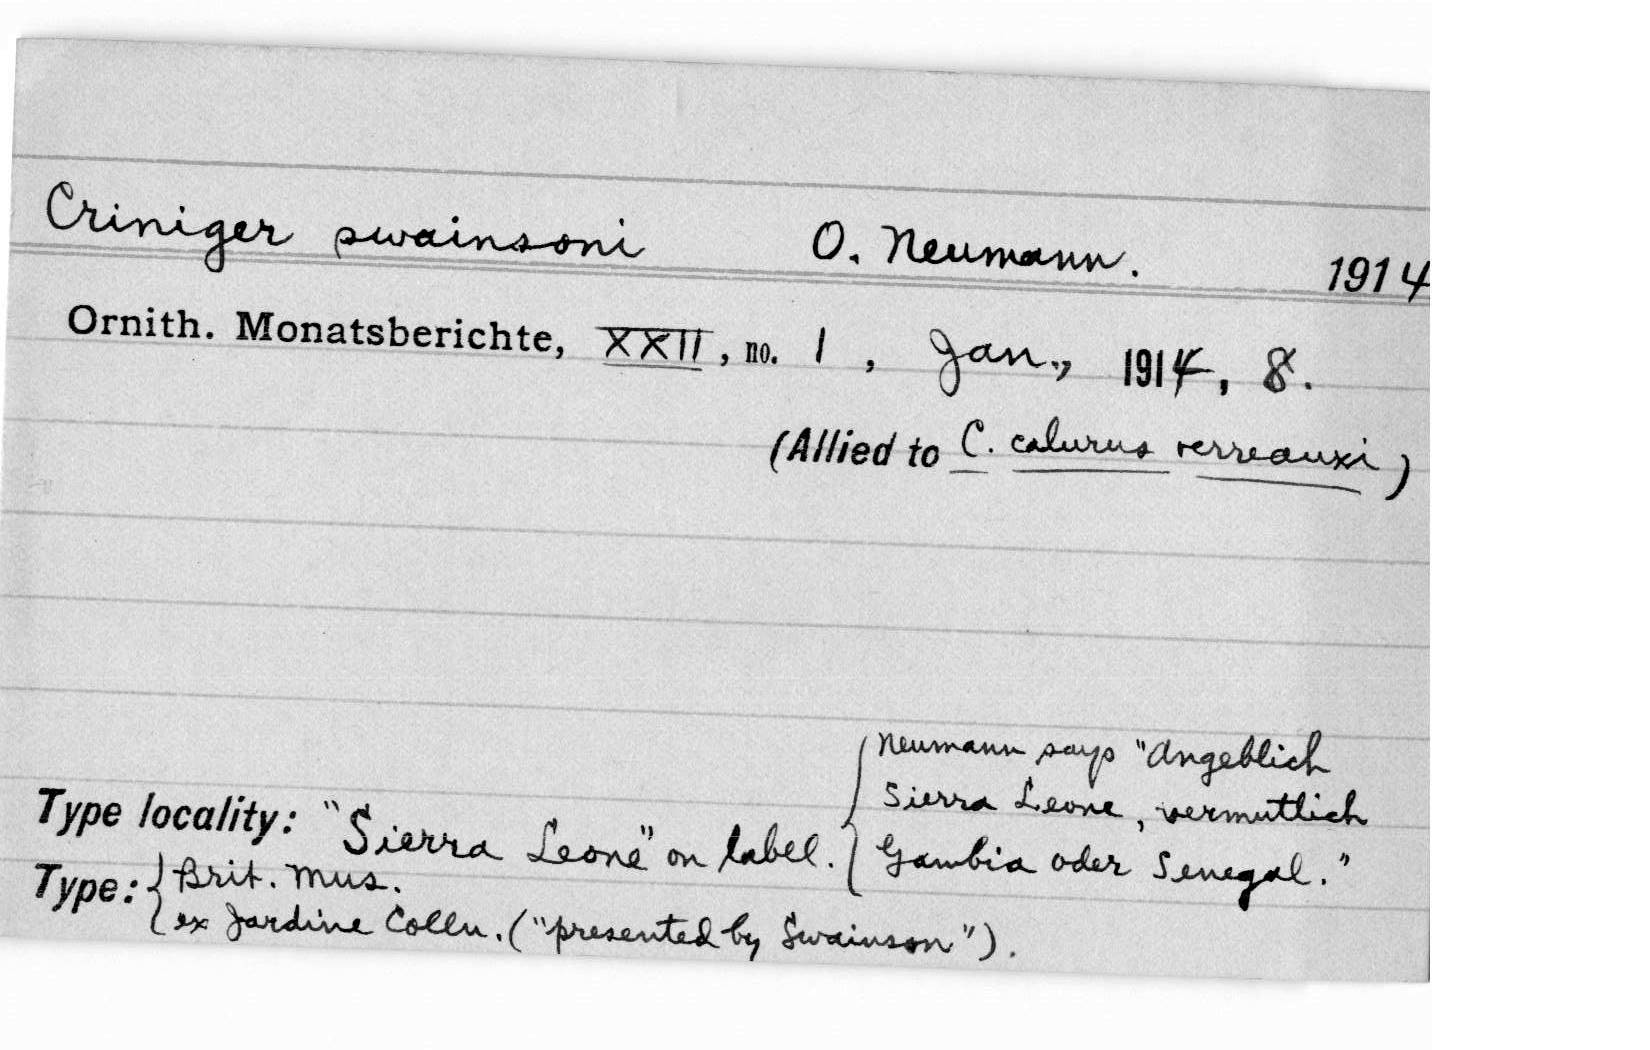 Criniger swainsoni O. Neumann. 1914
Ornith. Monatsberichte, XXII, no. 1, Jan., 1914, 8.
(Allied to C. calurus verreauxi)
Neumann says "Angeblich
Sierra Leone, vermutlich
Gambia oder Senegal."
Type locality: "Sierra Leone" on label.
Type: Brit. Mus.
ex Jardine Colln. ("presented by Swainson").